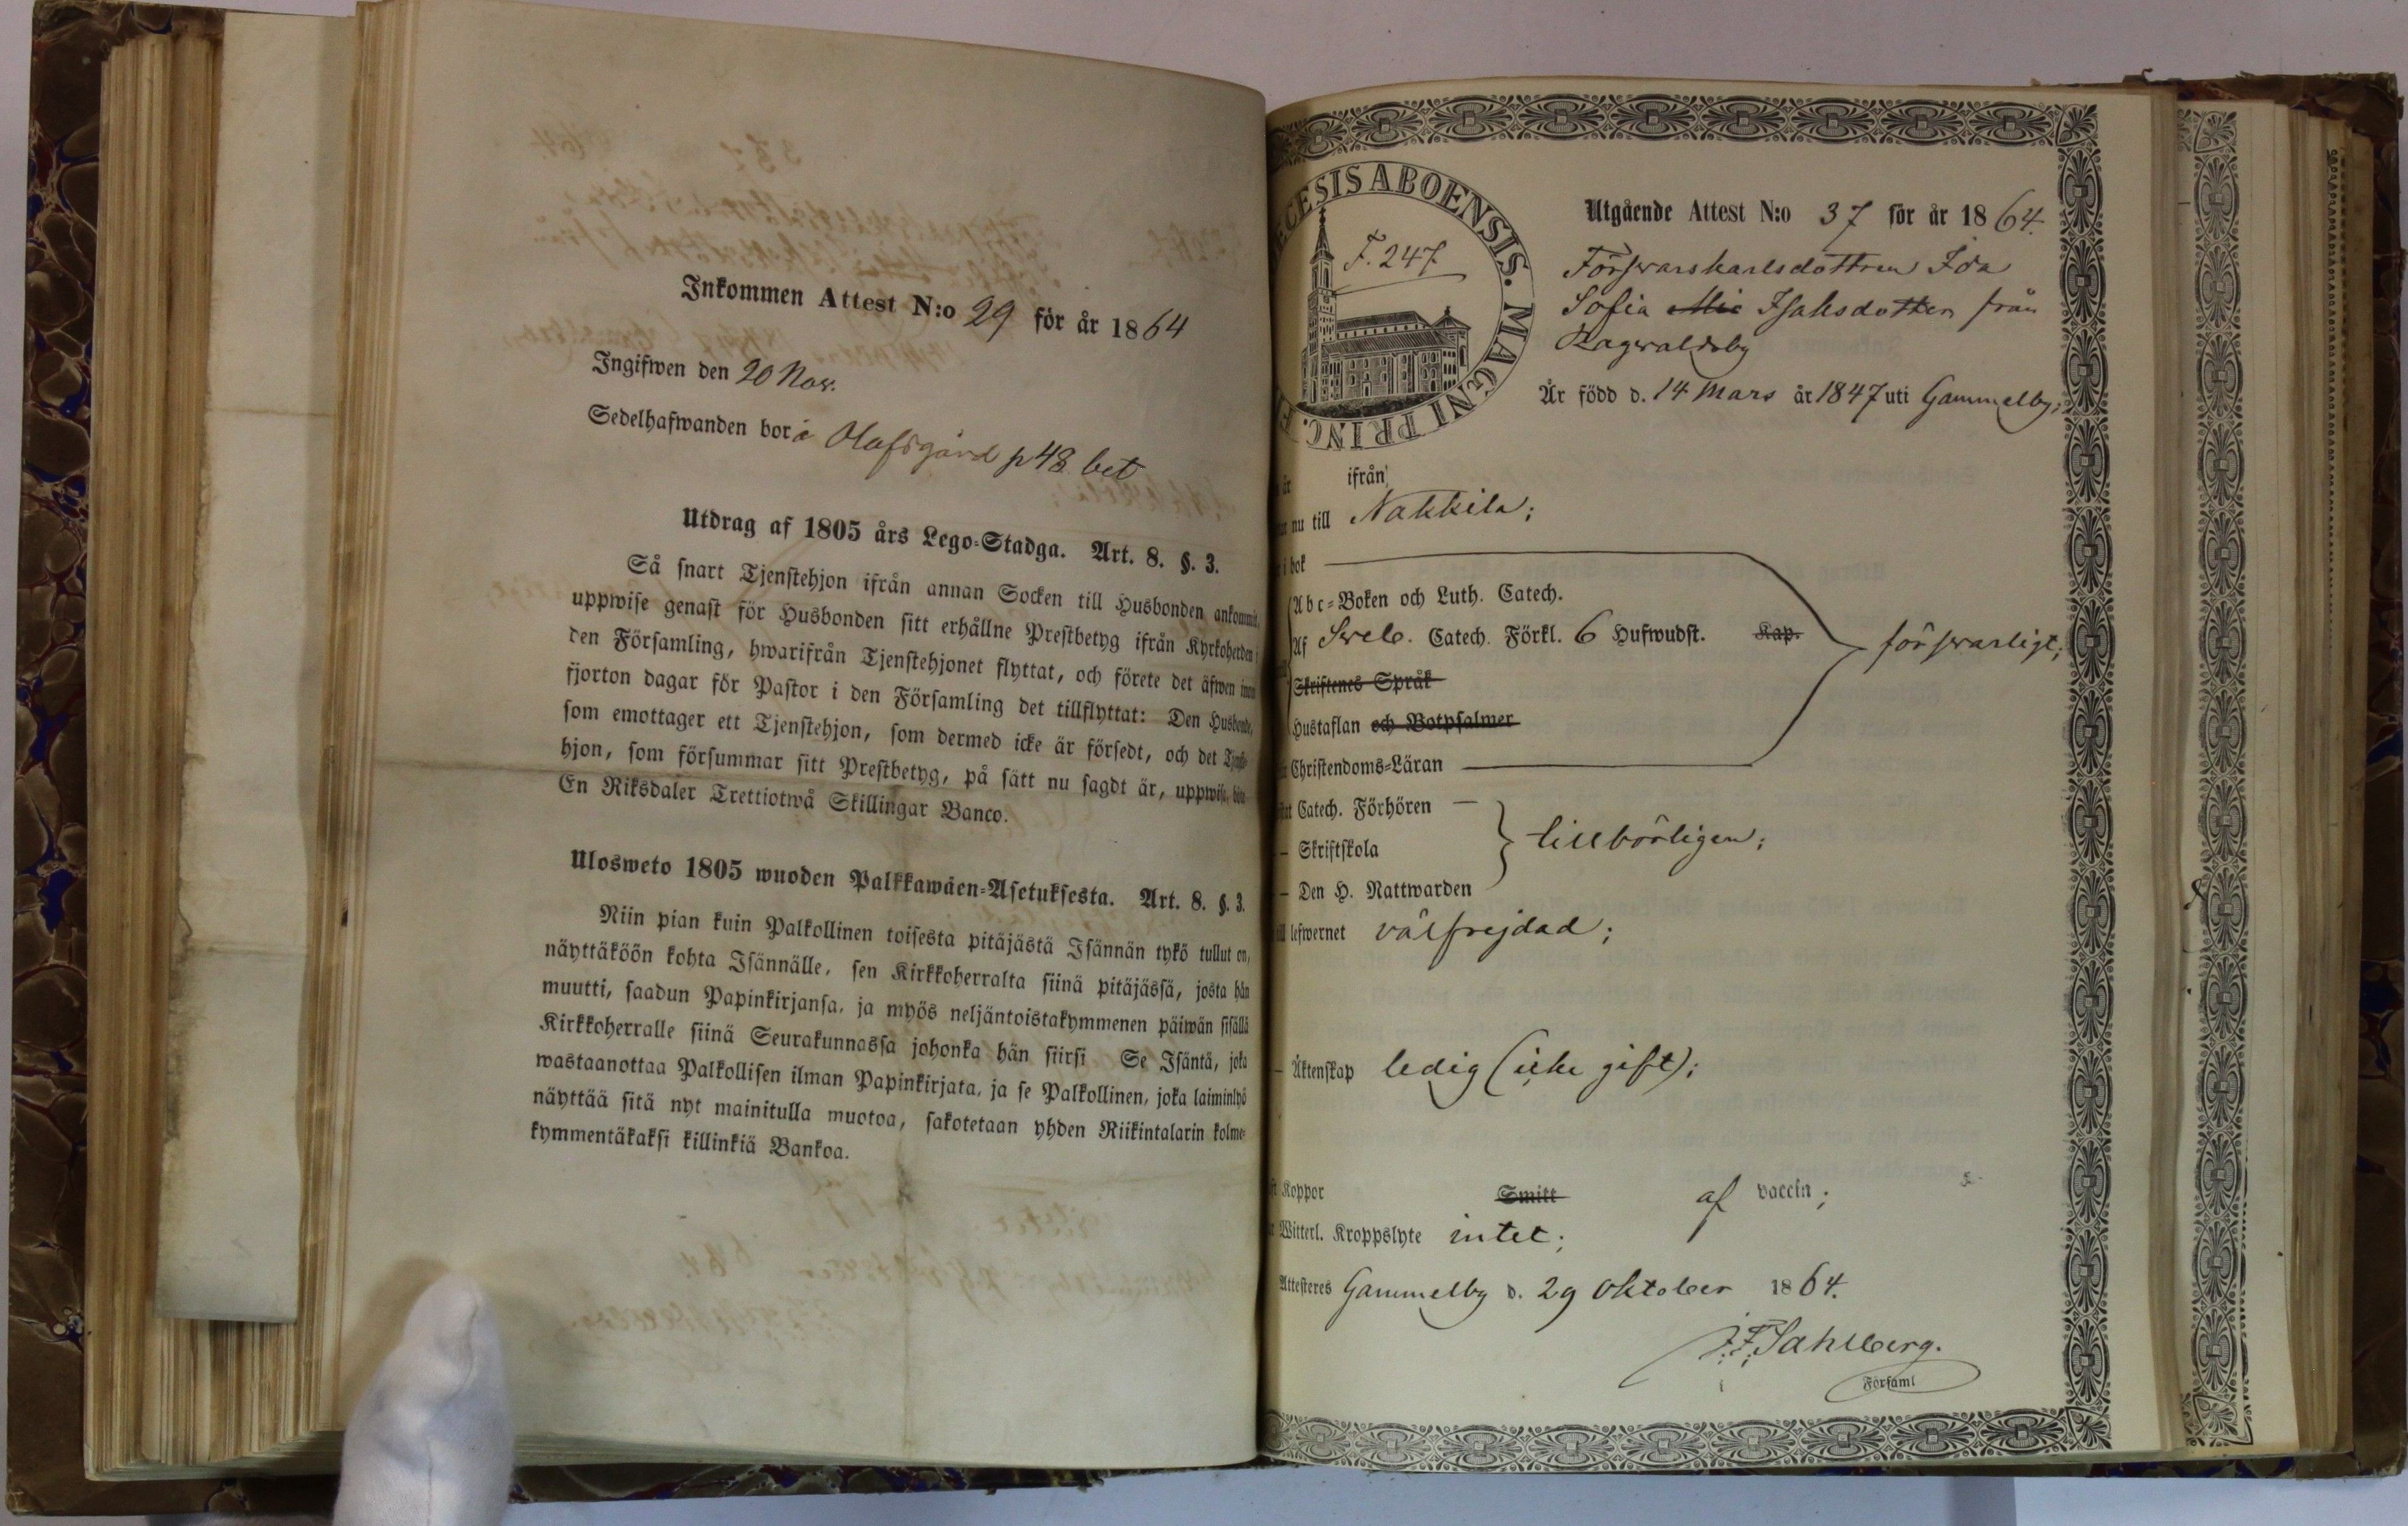 Inkommen Attest N:o 29 för år 1864
Ingifwen den 20 Nov.
Sedelhafwanden bor å Olafsgård p 48 bet
Utdrag af 1805 års Lego-Stadga. Art. 8. §. 3.
Så snart Tjenstehjon ifrån annan Socken till Husbonden ankommit,
uppwise genast för Husbonden sitt erhållne Prestbetyg ifrån Kyrkoherden i
den Församling, hwarifrån Tjenstehjonet flyttat, och förete det äfwen inom
fjorton dagar för Pastor i den Församling det tillflyttat: Den Husbonde,
som emottager ett Tjenstehjon, som dermed icke är försedt, och det Tjenste-
hjon, som försummar sitt Prestbetyg, på sätt nu sagdt är, uppwisa, böte
En Riksdaler Trettiotwå Skillingar Banco.
Ulosweto 1805 wuoden Palkkawäen-Asetuksesta. Art. 8. §. 3.
Niin pian kuin Palkollinen toisesta pitäjästä Isännän tykö tullut on,
näyttäköön kohta Isännälle, sen Kirkkoherralta siinä pitäjässä, josta hän
muutti, saadun Papinkirjansa, ja myös neljäntoistakymmenen päiwän sisällä
Kirkkoherralle siinä Seurakunnassa johonka hän siirsi Se Isäntä, joka
wastaanottaa Palkollisen ilman Papinkirjata, ja se Palkollinen, joka laiminlyö
näyttää sitä nyt mainitulla muotoa, sakotetaan yhden Riikintalarin kolme-
kymmentäkaksi killinkiä Bankoa.
ECESIS ABOENSIS. MAGNI PRINC. F
F. 247
Utgående Attest N:o 37 för år 1864.
Förswarskarlsdottren Ida
Sofia Mic Isaksdotter från
Ragwaldsby
Är född d. 14 Mars år 1847 uti Gammelby;
ifrån
nu till Nakkila;
i bok
Abc-Boken och Luth. Catech.
Af Sweb. Catech. Förkl. 6 Hufwudst. Kap. förswarligt;
Skriftenes Språk
Hustaflan och Botpsalmer
Christendoms-Läran
Catech. Förhören
– Skriftskola tillbörligen;
– Den H. Nattwarden
till lefwernet välfrejdad;
– Äktenskap ledig (icke gift);
Koppor Smitt af vaccin;
Witterl. Kroppslyte intet;
Attesteres Gammelby d. 29 Oktober 1864.
J. F. Sahlberg.
Församl